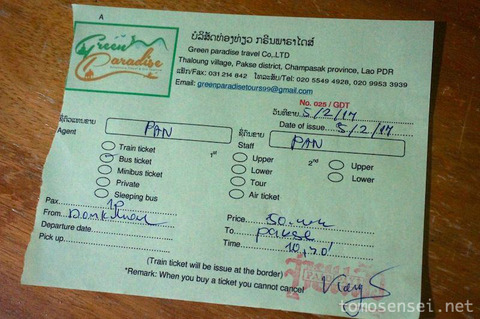 A
Green Paradise
ບໍລິສັດທ່ອງທ່ຽວ ກຣີນພາຣາໄດສ໌
Green paradise travel Co,.LTD
Thaloung village, Pakse district, Champasak province, Lao PDR
ແຟັກ/Fax: 031 214 842 ໂທລະສັບ/Tel: 020 5549 4928, 020 9953 3939
Email: greenparadisetour99@gmail.com
No. 025 / GDT
ວັນທີອອກ 5/2/17
Date of issue 5/2/17
Agent PAN Staff PAN
Train ticket 1st Upper 2nd Upper
Bus ticket Lower Lower
Minibus ticket Tour
Private Air ticket
Sleeping bus
Pax 1P Price
From To pakse
Departure date Time
Pick up
(Train ticket will be issue at the border)
*Remark: When you buy a ticket you cannot cancel
tomosensei.net